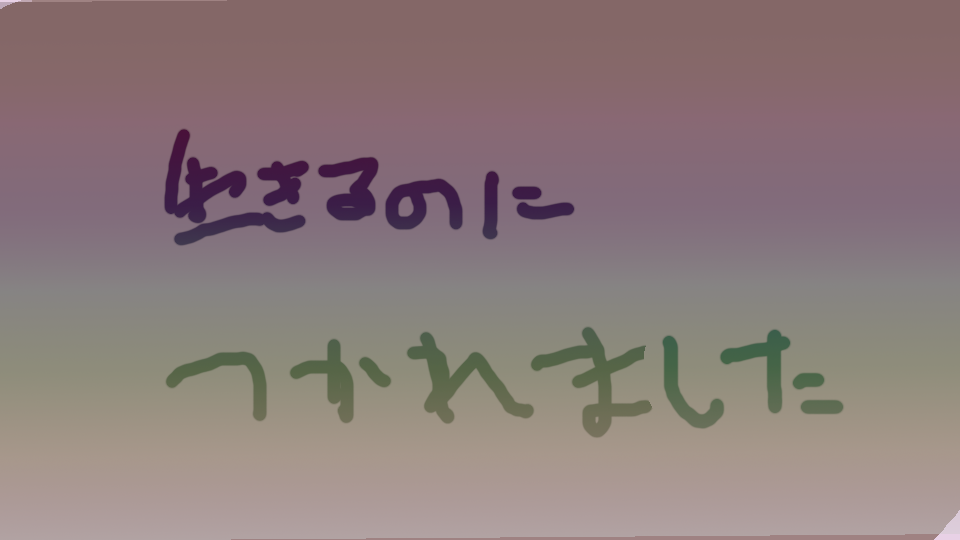 生きるのに
つかれました